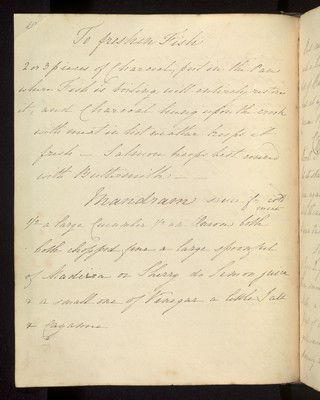 To freshen Fish
2 or 3 pieces of Charcoal, put in the Pan
where Fish is boiling will entirely restore
it, and Charcoal hung upon the hook
with meat in hot weather keeps it
fresh — Salmon keeps best covered
with Buttermilk — —
Mandram sauce for cold
meat
½ a large Cucumber ½ an Onion both
both chopped fine a large spoonful
of Madeira or Sherry do Lemon juice
& a small one of Vinegar a little Salt
& Cayanne